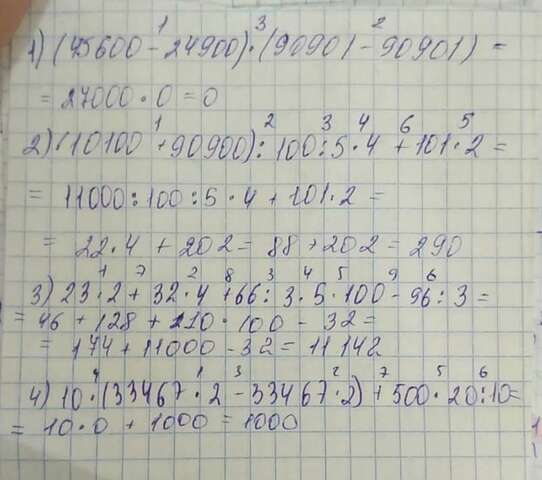 1) (45600 - 24900) · (90901 - 90901) =
= 27000 · 0 = 0
2) (10100 + 90900) : 100 : 5 · 4 + 101 · 2 =
= 11000 : 100 : 5 · 4 + 101 · 2 =
= 22 · 4 + 202 = 88 + 202 = 290
3) 23 · 2 + 32 · 4 + 66 : 3 · 5 · 100 - 96 : 3 =
= 46 + 128 + 110 · 100 - 32 =
= 174 + 11000 - 32 = 11142
4) 10 · (33467 · 2 - 33467 · 2) + 500 · 20 : 10 =
= 10 · 0 + 1000 = 1000